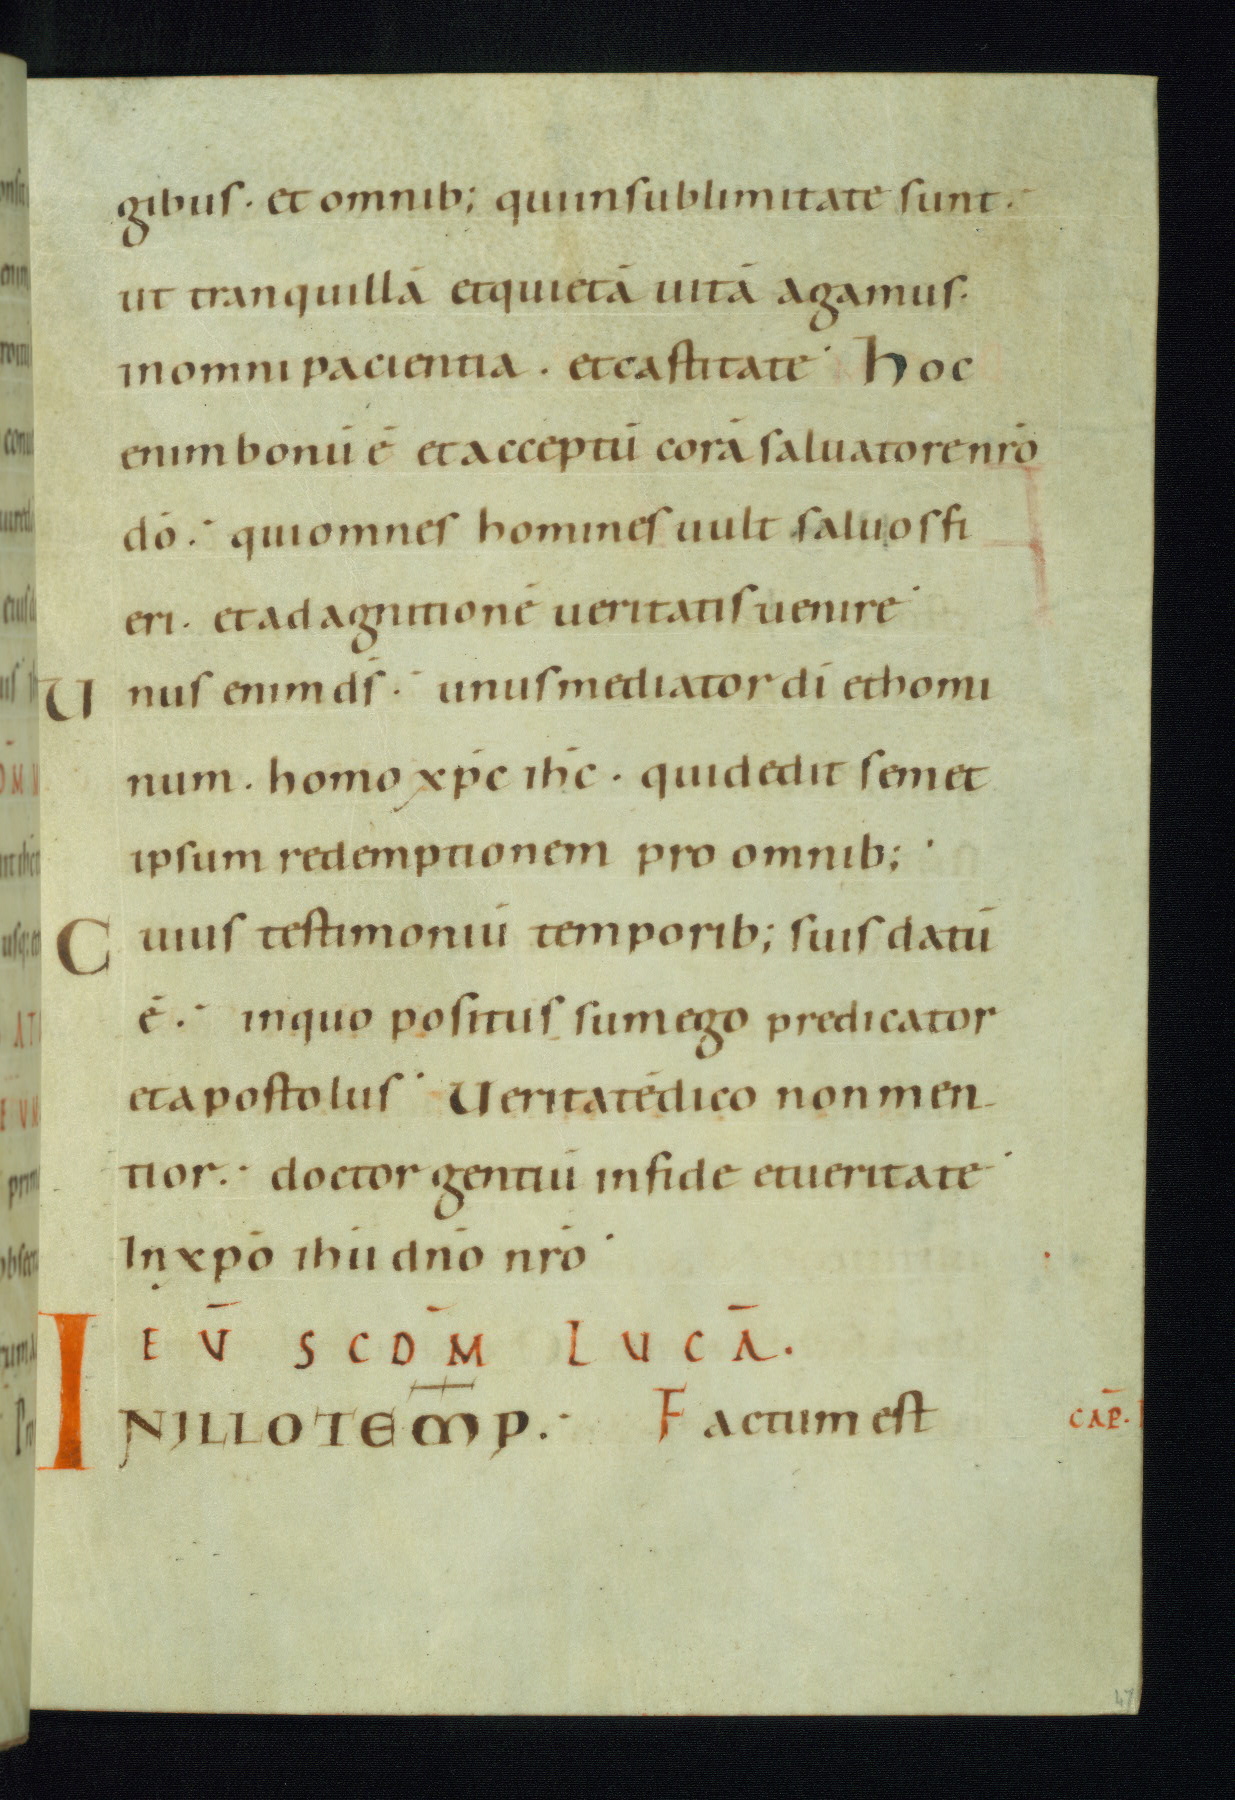 gibus. et omnib; qui in sublimitate sunt.
ut tranquillā et quietā uitā agamus.
in omni pacientia. et castitate Hoc
enim bonū ē et acceptū corā saluatore nr̄o
dō. qui omnes homines uult saluos fi
eri. et ad agnitionē ueritatis uenire
Unus enim ds̄. unus mediator dī et homi
num. homo xp̄c ih̄c. qui dedit semet
ipsum redemptionem pro omnib;
Cuius testimoniū temporib; suis datū
ē. in quo positus sum ego predicator
et apostolus Ueritatē dico non men
tior. doctor gentiū in fide et ueritate
In xp̄o ih̄u dn̄o nr̄o
EV̄ SCD̄M LVCĀ.
IN ILLO TEM̄P. Factum est
CAP̄.
47